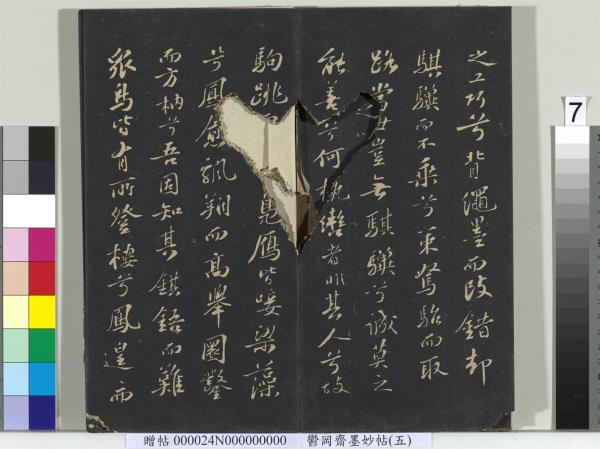 之工巧兮背繩墨而改錯却
騏驥而不乘兮策駑駘而取
路當世豈無騏驥兮誠莫之
能善兮何執轡者非其人兮故
駒跳鳧雁皆唼梁藻
兮鳳愈飄翔而高舉圜鑿
而方枘兮吾固知其鋙而難
眾鳥皆有所登棲兮鳳遑而
7
贈帖 000024N000000000 鬱岡齋墨妙帖(五)